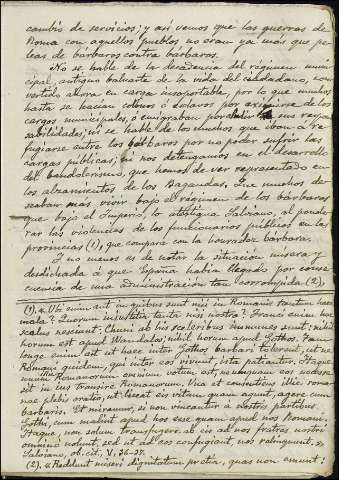 cambio de servicios; y así vemos que las guerras de
Roma con aquellos pueblos no eran ya más que pe-
leas de bárbaros contra bárbaros.
No se hable de la decadencia del régimen muni-
cipal, antiguo baluarte de la vida del ciudadano, con-
vertido ahora en carga insoportable, por lo que muchos
hasta se hacían colonos ó esclavos por eximirse de los
cargos municipales, ó emigraban por eludir sus respon-
sabilidades; ni se hable de los muchos que iban á re-
fugiarse entre los bárbaros por no poder sufrir las
cargas públicas; ni nos detengamos en el desarrollo
del bandolerismo, que hemos de ver representado en
los alzamientos de los Bagaudas. Que muchos de-
seaban más vivir bajo el régimen de los bárbaros
que bajo el Imperio, lo atestigua Salviano, al ponde-
rar las violencias de los funcionarios públicos en las
provincias (1), que compara con la honradez bárbara.
Y no menos es de notar la situación mísera y
desdichada á que España había llegado por conse-
cuencia de una administración tan corrompida (2).
(1). « Ubi enim aut in quibus sunt nisi in Romanis tantum haec
mala? Quorum injustitia tanta nisi nostra? Franci enim hoc
scelus nesciunt. Chuni ab his sceleribus immunes sunt; nihil
horum est apud Wandalos; nihil horum apud Gothos. Tam
longe enim est ut haec inter Gothos barbari tolerent, ut ne
Romani quidem, qui inter eos vivunt, ista patiantur. Itaque
unum Romanorum omnium votum est, ne unquam eos necesse
sit in jus transire Romanorum. Una et consentiens illic roma-
nae plebis oratio, ut liceat eis vitam quam agunt, agere cum
barbaris. Et miramur, si non vincantur á nostris partibus
Gothi, cum malint apud hos esse quam apud nos Romani.
Itaque, non solum transfugere ab eis ad nos fratres nostri
omnino nolunt, sed ut ad eos confugiant, nos relinquunt.»
Salviano, ob. cit., V, 36-37.
(2). « Reddunt miseri dignitatum pretia, quas non emunt: